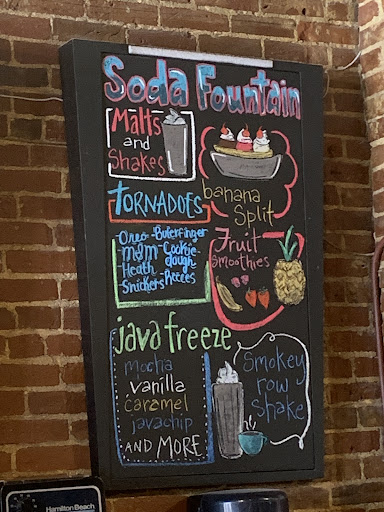 Soda Fountain
Malts
and
Shakes
banana
Split
TORNADOES
Oreo - Buterfinger
M&M - Cookie
Heath dough
Snickers - Reeces
Fruit
Smoothies
java freeze
mocha
vanilla
caramel
javachip
AND MORE
Smokey
row
Shake
Hamilton Beach